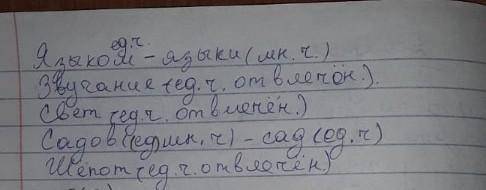 Языком ед.ч. - языки (мн. ч.)
Звучание (ед.ч. отвлечён.).
Свет (ед.ч. отвлечён.)
Садов (ед)мн. ч) - сад (ед. ч)
Шёпот (ед.ч. отвлечён)